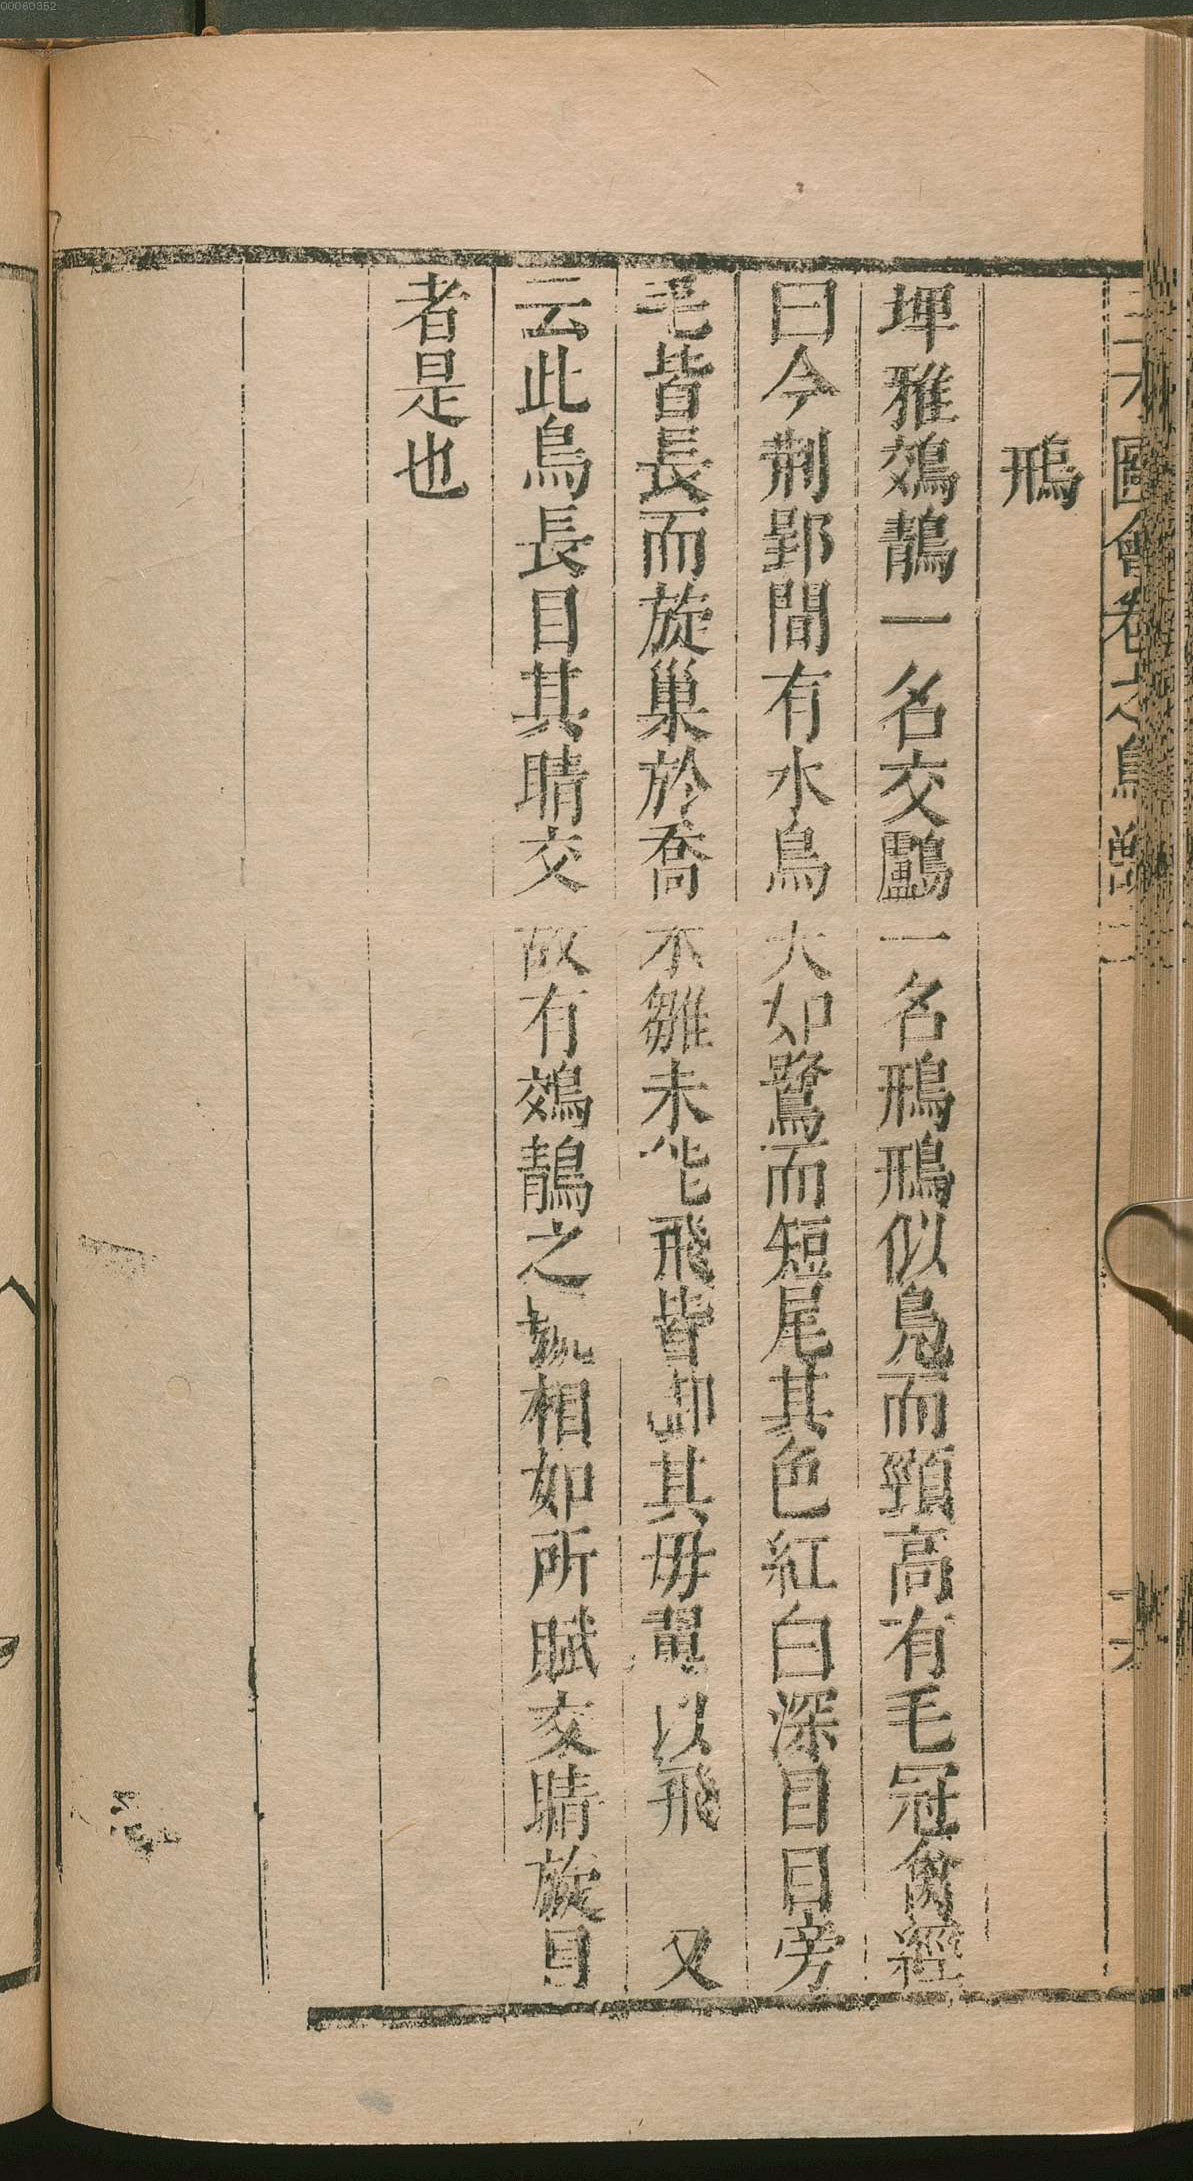 00060352
三才圖會卷之鳥獸二
鳽
埤雅鵁鶄一名交鸕一名鳽鳽似鳧而頸高有毛冠禽經
曰今荆郢間有水鳥大如鷺而短尾其色紅白深目目旁
毛皆長而旋巢於喬木雛未能飛皆卸其毋翼以飛 又
云此鳥長目其睛交故有鵁鶄之號相如所賦交睛旋目
者是也